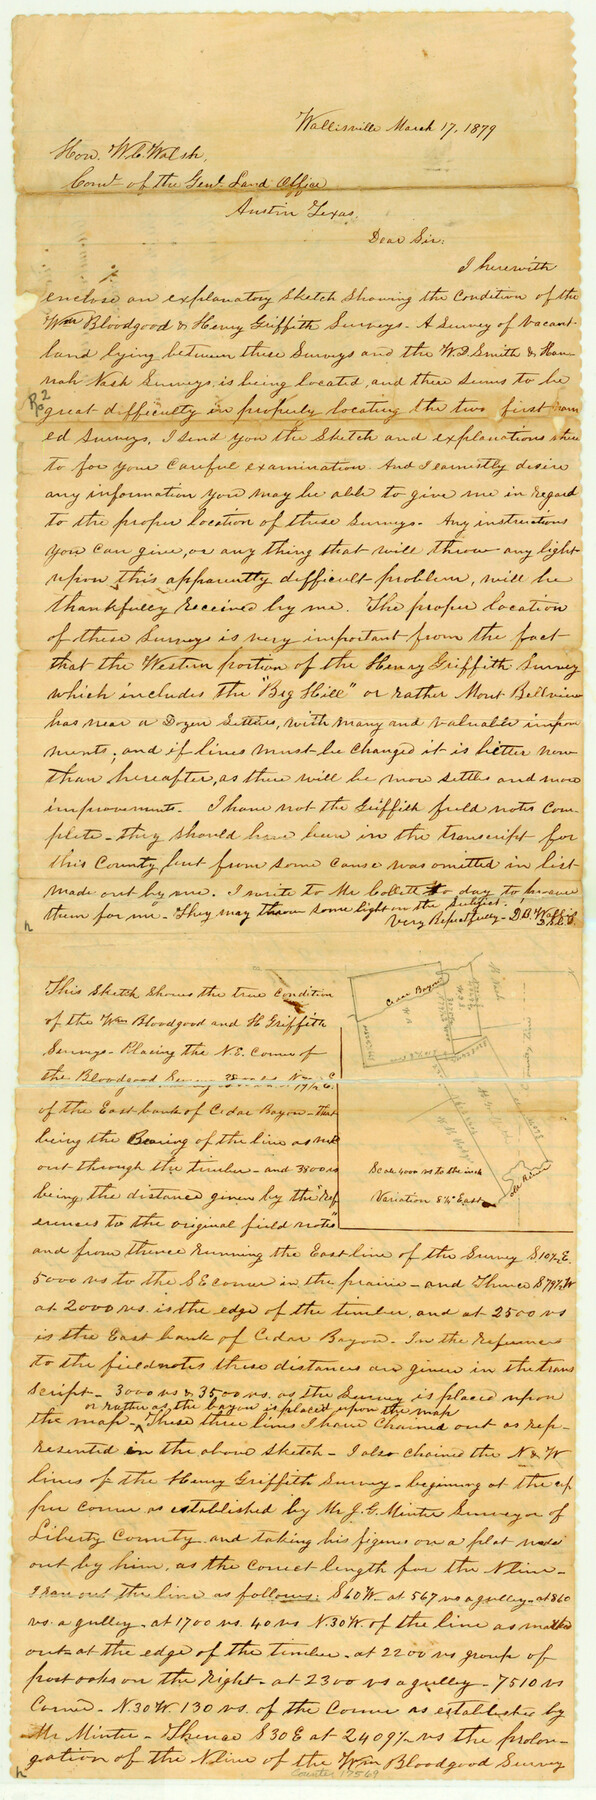 Wallisville March 17, 1879
Hon. W.C. Walsh,
Com'r of the Gen'l Land Office
Austin Texas.
Dear Sir:
I herewith
enclose an explanatory Sketch Showing the Condition of the
Wm Bloodgood & Henry Griffith Surveys. A Survey of Vacant
land lying between these Surveys and the W.D. Smith & Han-
nah Nash Surveys, is being located, and there seems to be
great difficulty in properly locating the two first nam
ed Surveys. I send you the Sketch and explanations there
to for your Careful examination. And I earnestly desire
any information you may be able to give me in regard
to the proper location of these Surveys. Any instructions
you can give, or any thing that will throw any light
upon this apparently difficult problem, will be
thankfully received by me. The proper location
of these Surveys is very important from the fact
that the Western portion of the Henry Griffith Survey
which includes the "Big Hill" or rather Mont Bellview
has near a Dozen Settlers, with many and valuable improv
ments; and if lines must be changed it is better now
than hereafter, as there will be more settlers and more
improvements. I have not the Griffith field notes com-
plete - they should have been in the transcript for
this County, but from some cause was omitted in list
made out by me. I write to Mr Collett to day to
them for me. They may throw some light on the subject.
Very Respectfully - D.B.
This Sketch Shows the true condition
of the Wm Bloodgood and H Griffith
Surveys - Placing the N.E. Corner of
the Bloodgood Survey 3800 vs N 79½ E.
of the East bank of Cedar Bayou - that
being the Bearing of the line as run
out through the timber - and 3800 vs
being the distance given by the "Ref
erences to the original field notes"
Cedar Bayou
Scale 4000 vs to the inch
Variation 8½° East
and from thence running the East line of the Survey S10½E.
5000 vs to the SE corner in the prairie - and Thence S79½W
at 2000 vs. is the edge of the timber, and at 2500 vs
is the East bank of Cedar Bayou - In the References
to the fieldnotes these distances are given in the trans
cript - 3000 vs & 3500 vs. as the Survey is placed upon
or rather as the bayou is placed upon the map
the map - These three lines I have Chained out as rep-
resented in the above sketch - I also chained the N & W
lines of the Henry Griffith Survey - beginning at the up
per corner as established by Mr J.G. Minter Surveyor of
Liberty County and taking his figures on a plat made
out by him, as the correct length for the N line -
I ran out the line as follows: S60W at 567 vs a gulley - at 860
vs. a gulley - at 1700 vs. 40 vs N.30W. of the line as marked
out - at the edge of the timber - at 2200 vs group of
post oaks on the right - at 2300 vs a gulley - 7510 vs
Corner - N.30W. 130 vs. of the Corner as established by
Mr Minter - Thence S30E at 2409½ vs the prolon-
gation of the N line of the Wm Bloodgood Survey
Counter 17569